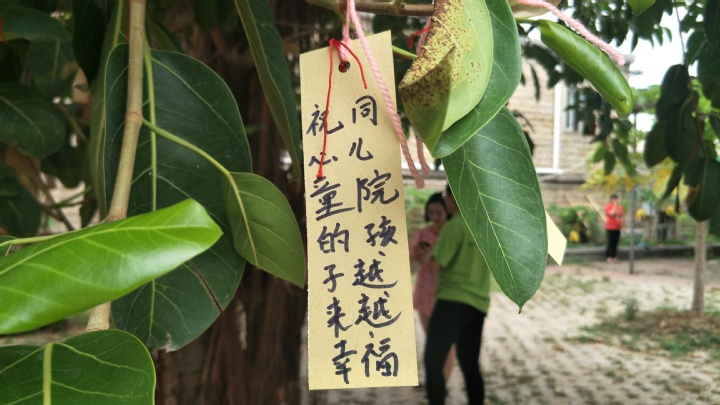 祝同
心儿
童院
的孩
子越
来越
幸福